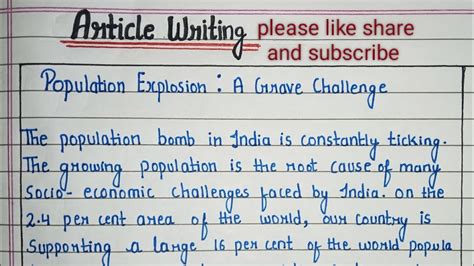 Article Writing please like share
and subscribe
Population Explosion : A Grave Challenge
The population bomb in India is constantly ticking.
The growing population is the root cause of many
Socio- economic challenges faced by India. on the
2.4 per cent area of the world, our country is
Supporting a large 16 per cent of the world popula